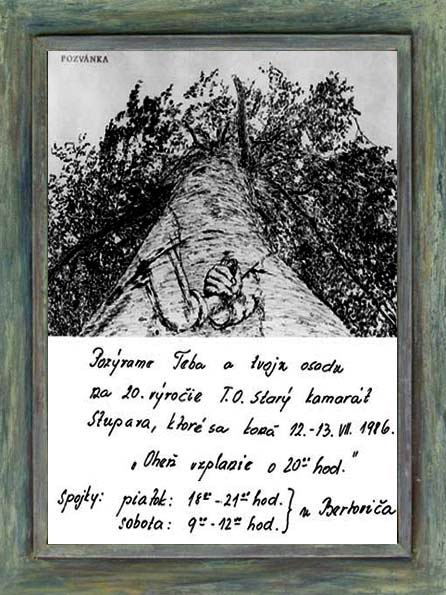 POZVÁNKA
Pozývame Teba a tvoju osadu
na 20. výročie T.O. Starý kamarát
Stupava, ktoré sa koná 12.-13. VII. 1986.
„Oheň vzplanie o 20ºº hod."
Spojky: piatok: 18ºº-21ºº hod. } u Bertoviča
sobota: 9ºº-12ºº hod.